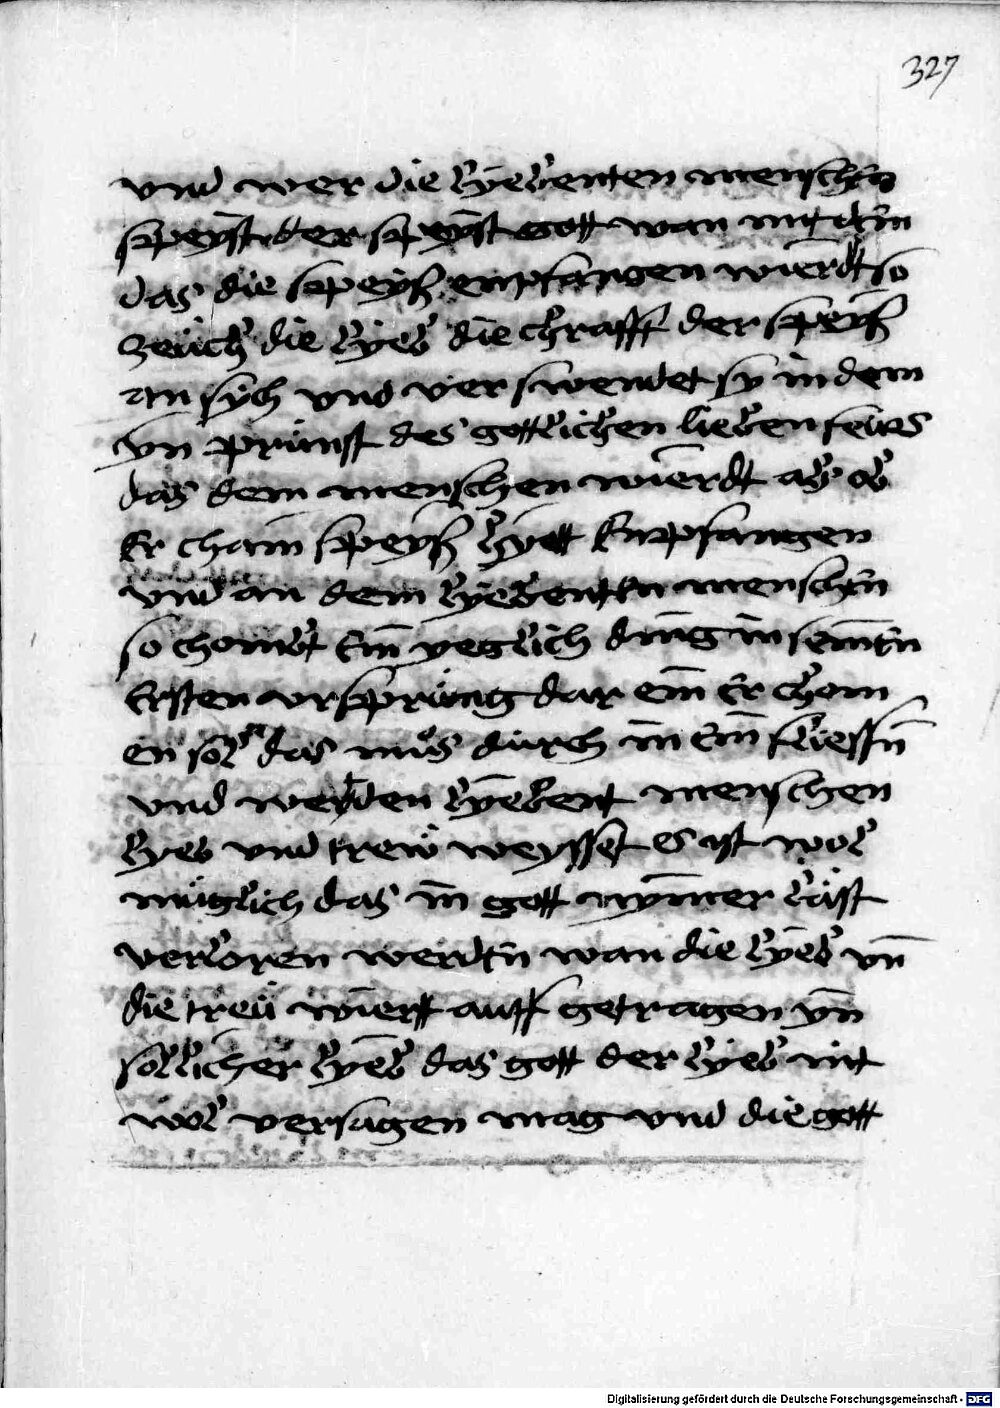 327
vnd wer die lyebenten menschen
speyst der speyst gott wan mit dem
das die speyß enpfangen wierdt so
zeuch die lyeb die chrafft der speyß
an sych vnd ver swendet sy in dem
yn prunst des gottlichen lieben feurs
das dem menschen wierdt als ob
Er chain speyß hyett Enpfangen
vnd an dem lyebenten menschen
so chombt Ein yeglich ding in seinen
Ersten vrsprung dar ein Er chom
en sol das mus durch in Ein fliessen
vnd wer den lyebent menschen
lyeb vnd trew weysset Es ist wol
muglich das in gott nymer läst
verloren werden wan die lyeb vn
die treu wiertt auff getragen yn
sollicher lyeb das gott der lyeb nit
wol versagen mag vnd die gott
Digitalisierung gefördert durch die Deutsche Forschungsgemeinschaft - DFG